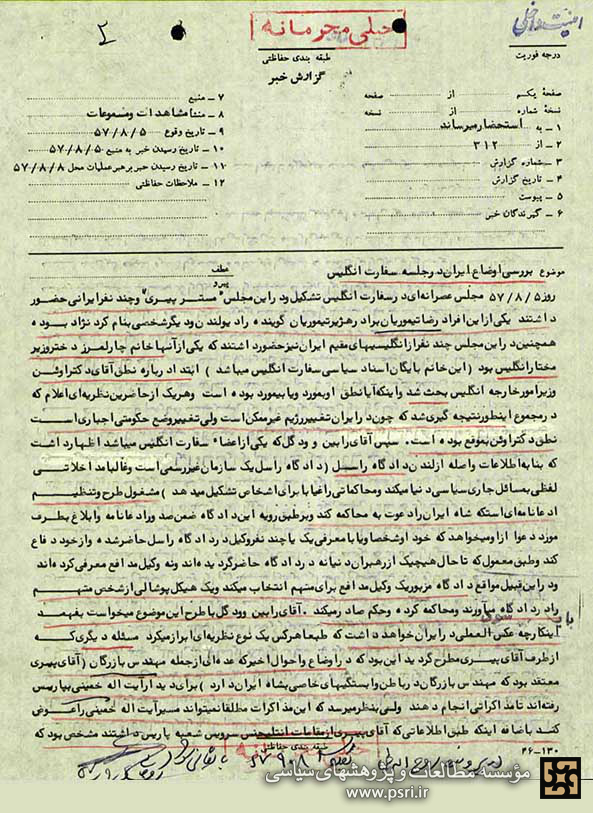 خیلی محرمانه
۲
امنیت داخلی
درجه فوریت
طبقه بندی حفاظتی
گزارش خبر
صفحه یکم از صفحه
نسخه شماره از نسخه
۱ – به استحضار میرساند
۲ – از ۳۱۲
۳ – شماره گزارش
۴ – تاریخ گزارش
۵ – پیوست
۶ – گیرندگان خبر
۷ – منبع
۸ – منشأ مشاهدات و مسموعات
۹ – تاریخ وقوع ۵۷/۸/۵
۱۰ – تاریخ رسیدن خبر به منبع ۵۷/۸/۵
۱۱ – تاریخ رسیدن خبر برهبر عملیات محل ۵۷/۸/۸
۱۲ – ملاحظات حفاظتی
موضوع بررسی اوضاع ایران در جلسه سفارت انگلیس
عطف
پیرو
روز ۵۷/۸/۵ مجلس عصرانه‌ای در سفارت انگلیس تشکیل و در این مجلس "مستر پیبری" و چند نفر ایرانی حضور
داشتند یکی از این افراد رضا تیموریان برادر هژیر تیموریان گوینده رادیو لندن و دیگر شخصی بنام کرد نژاد بوده
همچنین در این مجلس چند نفر از انگلیسیهای مقیم ایران نیز حضور داشتند که یکی از آنها خانم چارلمرز دختر وزیر
مختار انگلیس بود (این خانم بایگان اسناد سیاسی سفارت انگلیس میباشد) ابتدا درباره نطق آقای دکتر اوئن
وزیر امور خارجه انگلیس بحث شد و اینکه آیا نطق او بمورد و یا بیمورد بوده است و هر یک از حاضرین نظریه‌ای اعلام که
در مجموع اینطور نتیجه گیری شد که چون در ایران تغییر رژیم غیر ممکن است ولی تغییر وضع حکومتی اجباری است
نطق دکتر اوئن بموقع بوده است. سپس آقای رابین وودگل که یکی از اعضاء سفارت انگلیس میباشد اظهار داشت
که بنا به اطلاعات واصله از لندن دادگاه راسل (دادگاه راسل یک سازمان غیر رسمی است و غالبا مداخلاتی
لفظی به مسائل جاری سیاسی دنیا میکند و محاکماتی را غیابا برای اشخاص تشکیل میدهد) مشغول طرح و تنظیم
ادعانامه‌ای است که شاه ایران را دعوت به محاکمه کند و بر طبق رویه این دادگاه ضمن صدور ادعانامه و ابلاغ بطرف
مورد دعوا از او میخواهد که خود او شخصا و یا با معرفی یک یا چند نفر وکیل در دادگاه راسل حاضر شده و از خود دفاع
کند و طبق معمول که تا حال هیچیک از رهبران دنیا نه در دادگاه حاضر گردیده‌اند و نه وکیل مدافع معرفی کرده‌اند
و در این قبیل مواقع دادگاه مزبور یک وکیل مدافع برای متهم انتخاب میکند و یک هیکل پوشالی از شخص متهم
را در دادگاه میآورند و محاکمه کرده و حکم صادر میکند. آقای رابین وودگل با طرح این موضوع میخواست بفهمد
اینکار چه عکس العملی در ایران خواهد داشت که طبعا هر کس یک نوع نظریه‌ای ابراز میکرد مسئله دیگری که
از طرف آقای پیبری مطرح گردید این بود که در اوضاع و احوال اخیر که عده‌ای از جمله مهندس بازرگان (آقای پیبری
معتقد بود که مهندس بازرگان در باطن وابستگیهای خاصی بشاه ایران دارد) برای دیدار آیت اله خمینی بپاریس
رفته‌اند تا مذاکراتی انجام دهند ولی بنظر میرسد که این مذاکرات مطلقا نمیتواند مسیر آیت اله خمینی را عوض
کند باضافه اینکه طبق اطلاعاتی که آقای پیبری از مقامات انتلیجنس سرویس شعبه پاریس داشتند مشخص بود که
طبقه بندی حفاظتی
۳۶–۱۳۰
خیلی محرمانه
مؤسسه مطالعات و پژوهشهای سیاسی
www.psri.ir